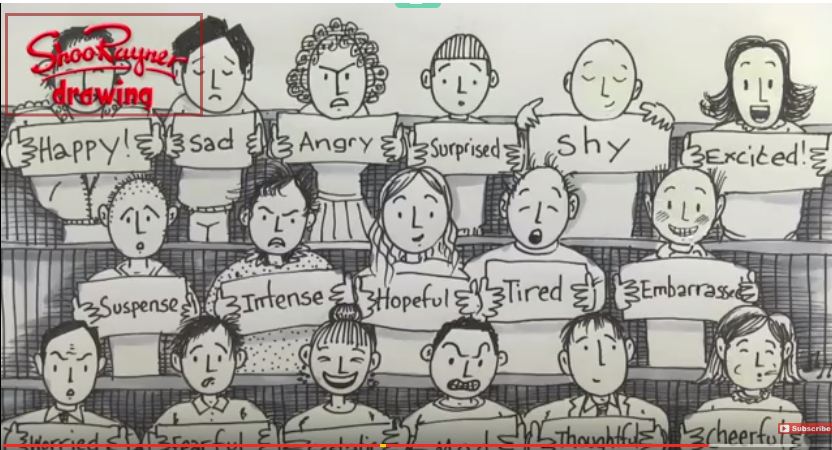 Shoo Rayner
drawing
Happy! Sad Angry Surprised Shy Excited!
Suspense Intense Hopeful Tired Embarrassed
Worried Fearful Mad Thoughtful cheerful
Subscribe